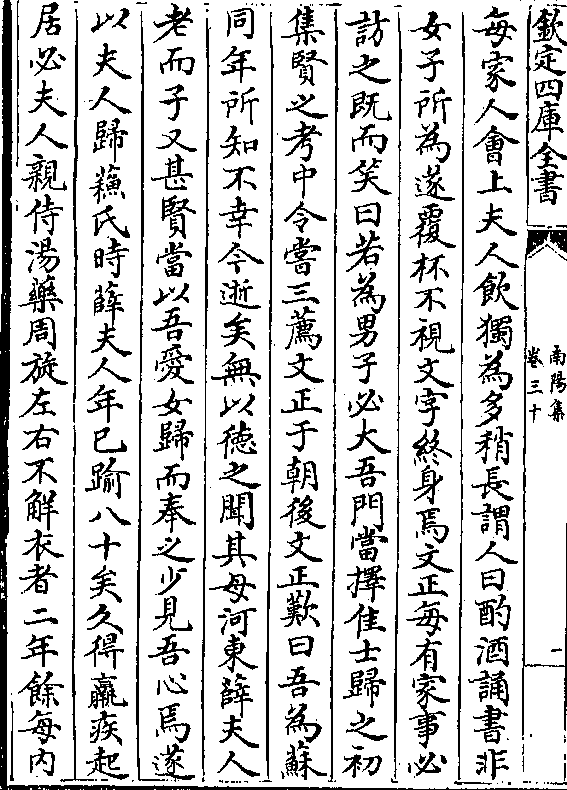 欽定四庫全書
南陽集
卷三十
一
每家人會上夫人飲獨為多稍長謂人曰酌酒誦書非
女子所為遂覆杯不視文字終身焉文正每有家事必
訪之既而笑曰若為男子必大吾門當擇佳士歸之初
集賢之考中令嘗三薦文正于朝後文正歎曰吾為蘇
同年所知不幸今逝矣無以德之聞其母河東薛夫人
老而子又甚賢當以吾愛女歸而奉之少見吾心焉遂
以夫人歸蘓氏時薛夫人年已踰八十矣久得羸疾起
居必夫人親侍湯藥周旋左右不解衣者二年餘每内